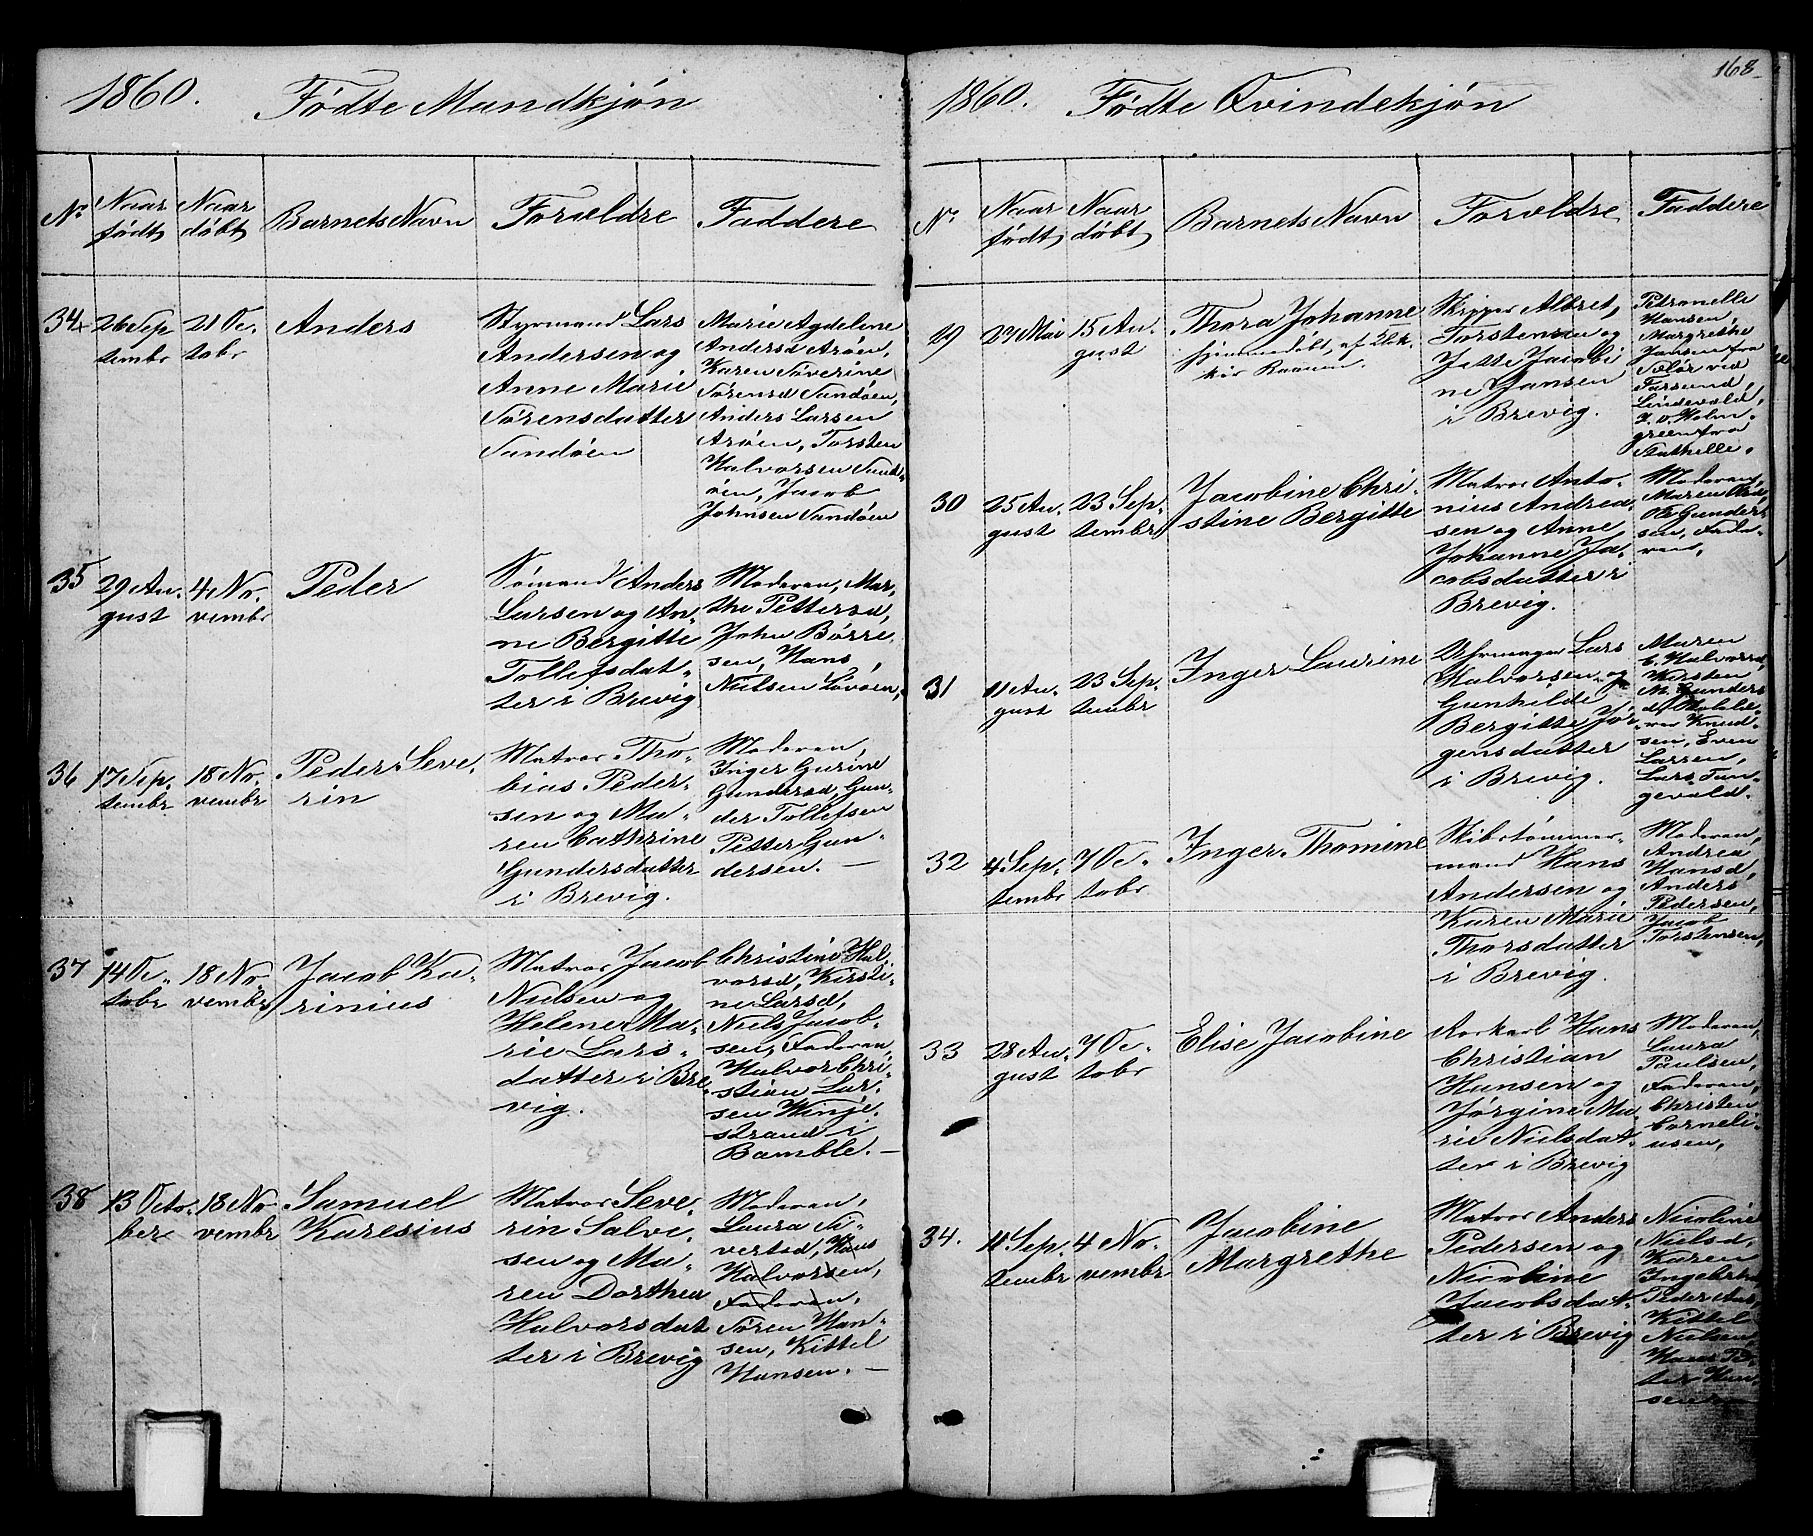 1860. Fødte Mandkjøn
No
Naar født
Naar døbt
Barnets Navn
Forældre
Faddere
34
26 Sep
tembr
21 Oc.
tobr
Anders
Styrmand Lars
Andersen og
Anne Marie
Sørensdatter
Sandøen
Marie Agdelene
Andersd Arøen,
Karen Severine
Sørensd Sandøen,
Anders Larsen
Arøen, Torsten
Halvorsen Sand-
øen, Jacob
Johnsen Sandøen
35
29 Au.
gust
4 No.
vembr
Peder
Sømand Anders
Larsen og An-
ne Bergitte
Tollefsdat-
ter i Brevig
Moderen, Mar-
the Pettersd,
John Børre-
sen, Hans
Nielsen Løvøen,
36
17 Sep.
tembr
18 No.
vembr
Peder Seve-
rin
Matros Tho-
bias Peder-
sen og Ma-
ren Cathrine
Gundersdatter
i Brevig.
Moderen,
Inger Gurine
Gundersd, Gun-
der Tollefsen
Petter Gun-
dersen. —
37
14 Oc.
tobr
18 No.
vembr
Jacob Ka-
rinius
Matros Jacob
Nielsen og
Helene Ma-
rie Lars-
datter i Bre-
vig.
Christine Hal-
vorsd, Kirsti-
ne Larsd,
Niels Jacob-
sen, Faderen,
Halvor Chri-
stian Lar-
sen Winje-
strand i
Bamble. —
38
13 Octo-
ber
18 No
vembr
Samuel
Karesius
Matros Seve-
rin Salvi-
sen og Ma-
ren Dorthea
Halvorsdat
ter i Brevig
Moderen,
Laura Si-
vertsd, Hans
Halvorsen,
Faderen,
Søren Han-
sen, Kittel
Hansen. —
168
1860. Fødte Qvindekjøn
No
Naar født
Naar døbt
Barnets Navn
Forældre
Faddere
29
27 Mai
15 Au-
gust
Thora Johanne
hjemmedøbt, af Klok-
ker
Skipper Albret
Torstensen og
Jette Jacobi-
ne Jansen
i Brevig.
Petronelle
Hansen,
Margrethe
Jansen fra
ved
Farsund
Lindevold,
Holm-
green fra
Stathelle.
30
25 Au.
gust
23 Sep.
tembr
Jacobine Chri-
stine Bergitte
Matros Anto-
nius Andrea-
sen og Anne
Johanne Ja-
cobsdatter i
Brevig.
Moderen,
Maren
Ole Gundert
sen, Fade-
ren,
31
11 Au.
gust
23 Sep.
tembr
Inger Laurine
Uhrmager Lars
Halvorsen og
Gunhilde
Bergitte Jør-
gensdatter
i Brevig.
Maren
C. Halvorsd,
Kirsten
M. Gunders
d,
Knud-
sen, Even
Larsen,
Lars Tan-
gevald.
32
4 Sep.
tembr
7 Oc-
tobr
Inger Thomine
Skibstømmer-
mand Hans
Andersen og
Karen Marie
Thorsdatter
i Brevig.
Moderen,
Andrea
Hansd,
Anders
Pedersen,
Jacob
Torstensen,
33
28 Au.
gust
7 Oc-
tobr
Elise Jacobine
Rorkarl Hans
Christian
Hansen og
Jørgine Ma-
rie Nielsdat-
ter i Brevig
Moderen,
Laura
Paulsen,
Faderen,
Christen
Corneli-
usen,
34.
11 Sep.
tembr
4 No.
vembr
Jacobine
Margrethe
Matros Anders
Pedersen og
Nicoline
Jacobsdat-
ter i Brevig
Nicoline
Nielsd,
Karen
Ingebrtsd
Peder And.
Kittel
Nielsen
Hans Pe-
ter Han-
sen